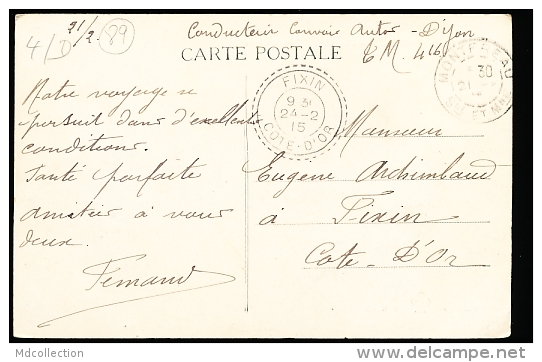 21/2
4/D
89
Conducteur Convois Autos - Dijon
CARTE POSTALE
T M. 416
FIXIN
9 3
24-2
15
COTE-D'OR
MONTEREAU
30
21
SEINE ET MNE
Notre voyage se
persuit dans d'excellentes
conditions.
Santé parfaite
amitiés à vous
deux.
Fernand
Monsieur
Eugene Archimbaud
à Fixin
Cote-D'Or
Mdcollection
www.delcampe.net